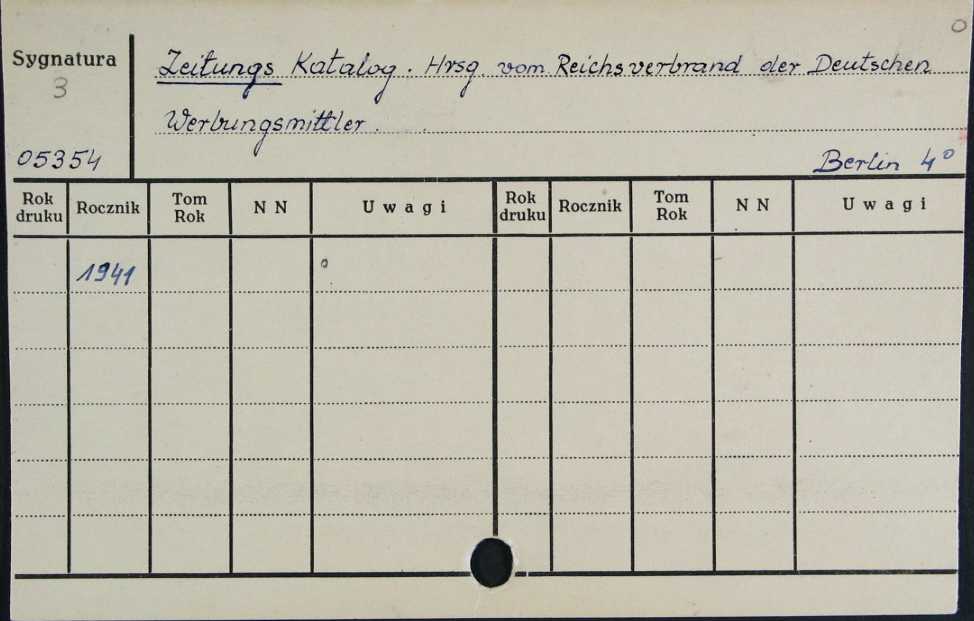 Sygnatura
3
05354
Zeitungs Katalog. Hrsg. vom Reichsverbrand der Deutschen
Werbungsmittler.
Berlin 4°
Rok druku Rocznik Tom Rok N N Uwagi Rok druku Rocznik Tom Rok N N Uwagi
1941